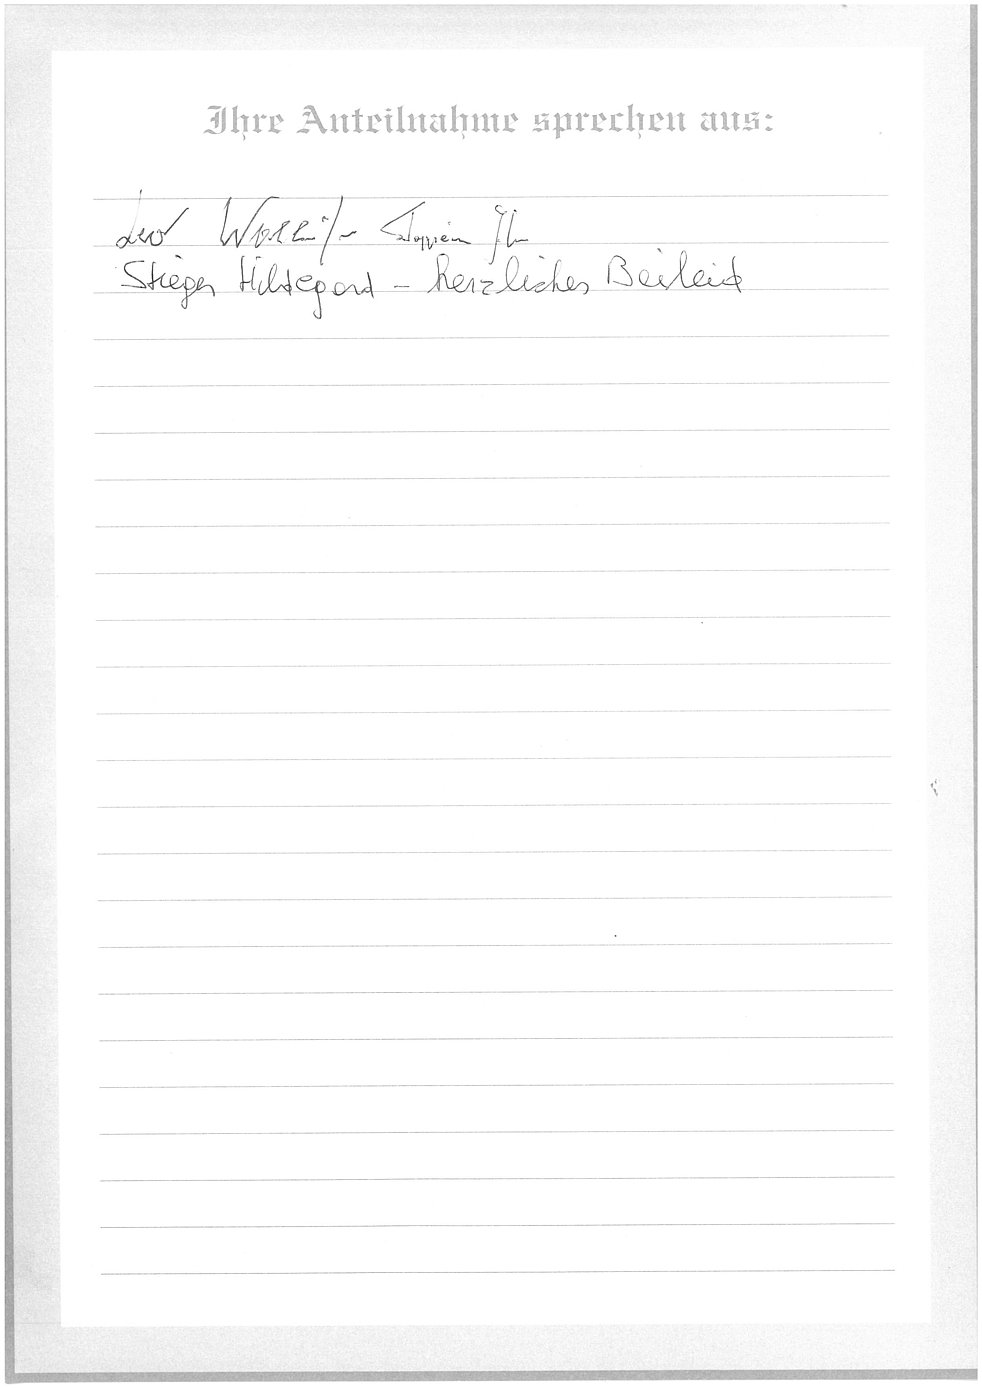 Ihre Anteilnahme sprechen aus:
Leo
Stieger Hildegard – herzliches Beileid